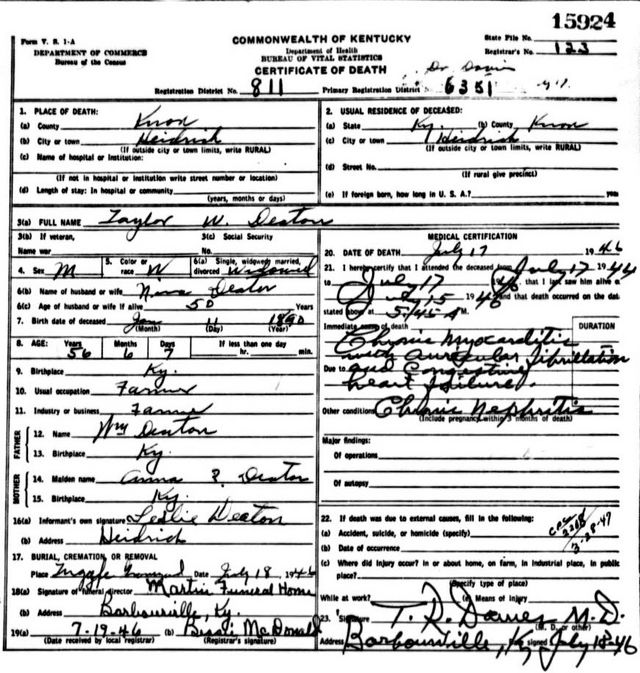 15924
Form V. S. 1-A
DEPARTMENT OF COMMERCE
Bureau of the Census
COMMONWEALTH OF KENTUCKY
Department of Health
BUREAU OF VITAL STATISTICS
CERTIFICATE OF DEATH
State File No.
Registrar's No. 123
Registration District No. 811
Primary Registration District 6351
1. PLACE OF DEATH:
(a) County Knox
(b) City or town Heidrick
(If outside city or town limits, write RURAL)
(c) Name of hospital or institution:
(If not in hospital or institution write street number or location)
(d) Length of stay: In hospital or community
(years, months or days)
2. USUAL RESIDENCE OF DECEASED:
(a) State Ky. (b) County Knox
(c) City or town Heidrick
(If outside city or town limits, write RURAL)
(d) Street No.
(If rural give precinct)
(e) If foreign born, how long in U. S. A.? years
3(a) FULL NAME Taylor W. Deaton
3(b) If veteran, 3(c) Social Security
Name war No.
4. Sex M 5. Color or race W 6(a) Single, widowed married, divorced Widowed
6(b) Name of husband or wife Deaton
6(c) Age of husband or wife if alive 50 Years
7. Birth date of deceased Jan 11 1890
(Month) (Day) (Year)
8. AGE: Years Months Days If less than one day
56 6 7 hr. min.
9. Birthplace Ky.
10. Usual occupation Farmer
11. Industry or business Farmer
FATHER
12. Name Wm Deaton
13. Birthplace Ky.
MOTHER
14. Maiden name Anna ? Deaton
15. Birthplace Ky.
16(a) Informant's own signature Leslie Deaton
(b) Address Heidrick
17. BURIAL, CREMATION, OR REMOVAL
Place Date July 18, 1946
18(a) Signature of funeral director Martin Funeral Home
(b) Address Barbourville, Ky.
19(a) 7-19-46 (b) McDonald
(Date received by local registrar) (Registrar's signature)
MEDICAL CERTIFICATION
20. DATE OF DEATH July 17 1946
21. I hereby certify that I attended the deceased from July 17 1946
to July 17 1946, that I last saw him alive on
July 15 1946 and that death occurred on the date
stated above at 5:45 A M.
Immediate cause of death DURATION
Chronic Myocarditis
with auricular fibrillation
Due to and Congestive
heart failure.
Other conditions Chronic Nephritis
(Include pregnancy within 3 months of death)
Major findings:
Of operations
Of autopsy
22. If death was due to external causes, fill in the following:
(a) Accident, suicide, or homicide (specify)
3-28-47
(b) Date of occurrence
(c) Where did injury occur? In or about home, on farm, in industrial place, in public
place?
(Specify type of place)
While at work? (e) Means of injury
23. Signature T. R. Davies M.D.
(M. D. or other)
Address Barbourville, Ky signed July 18-46